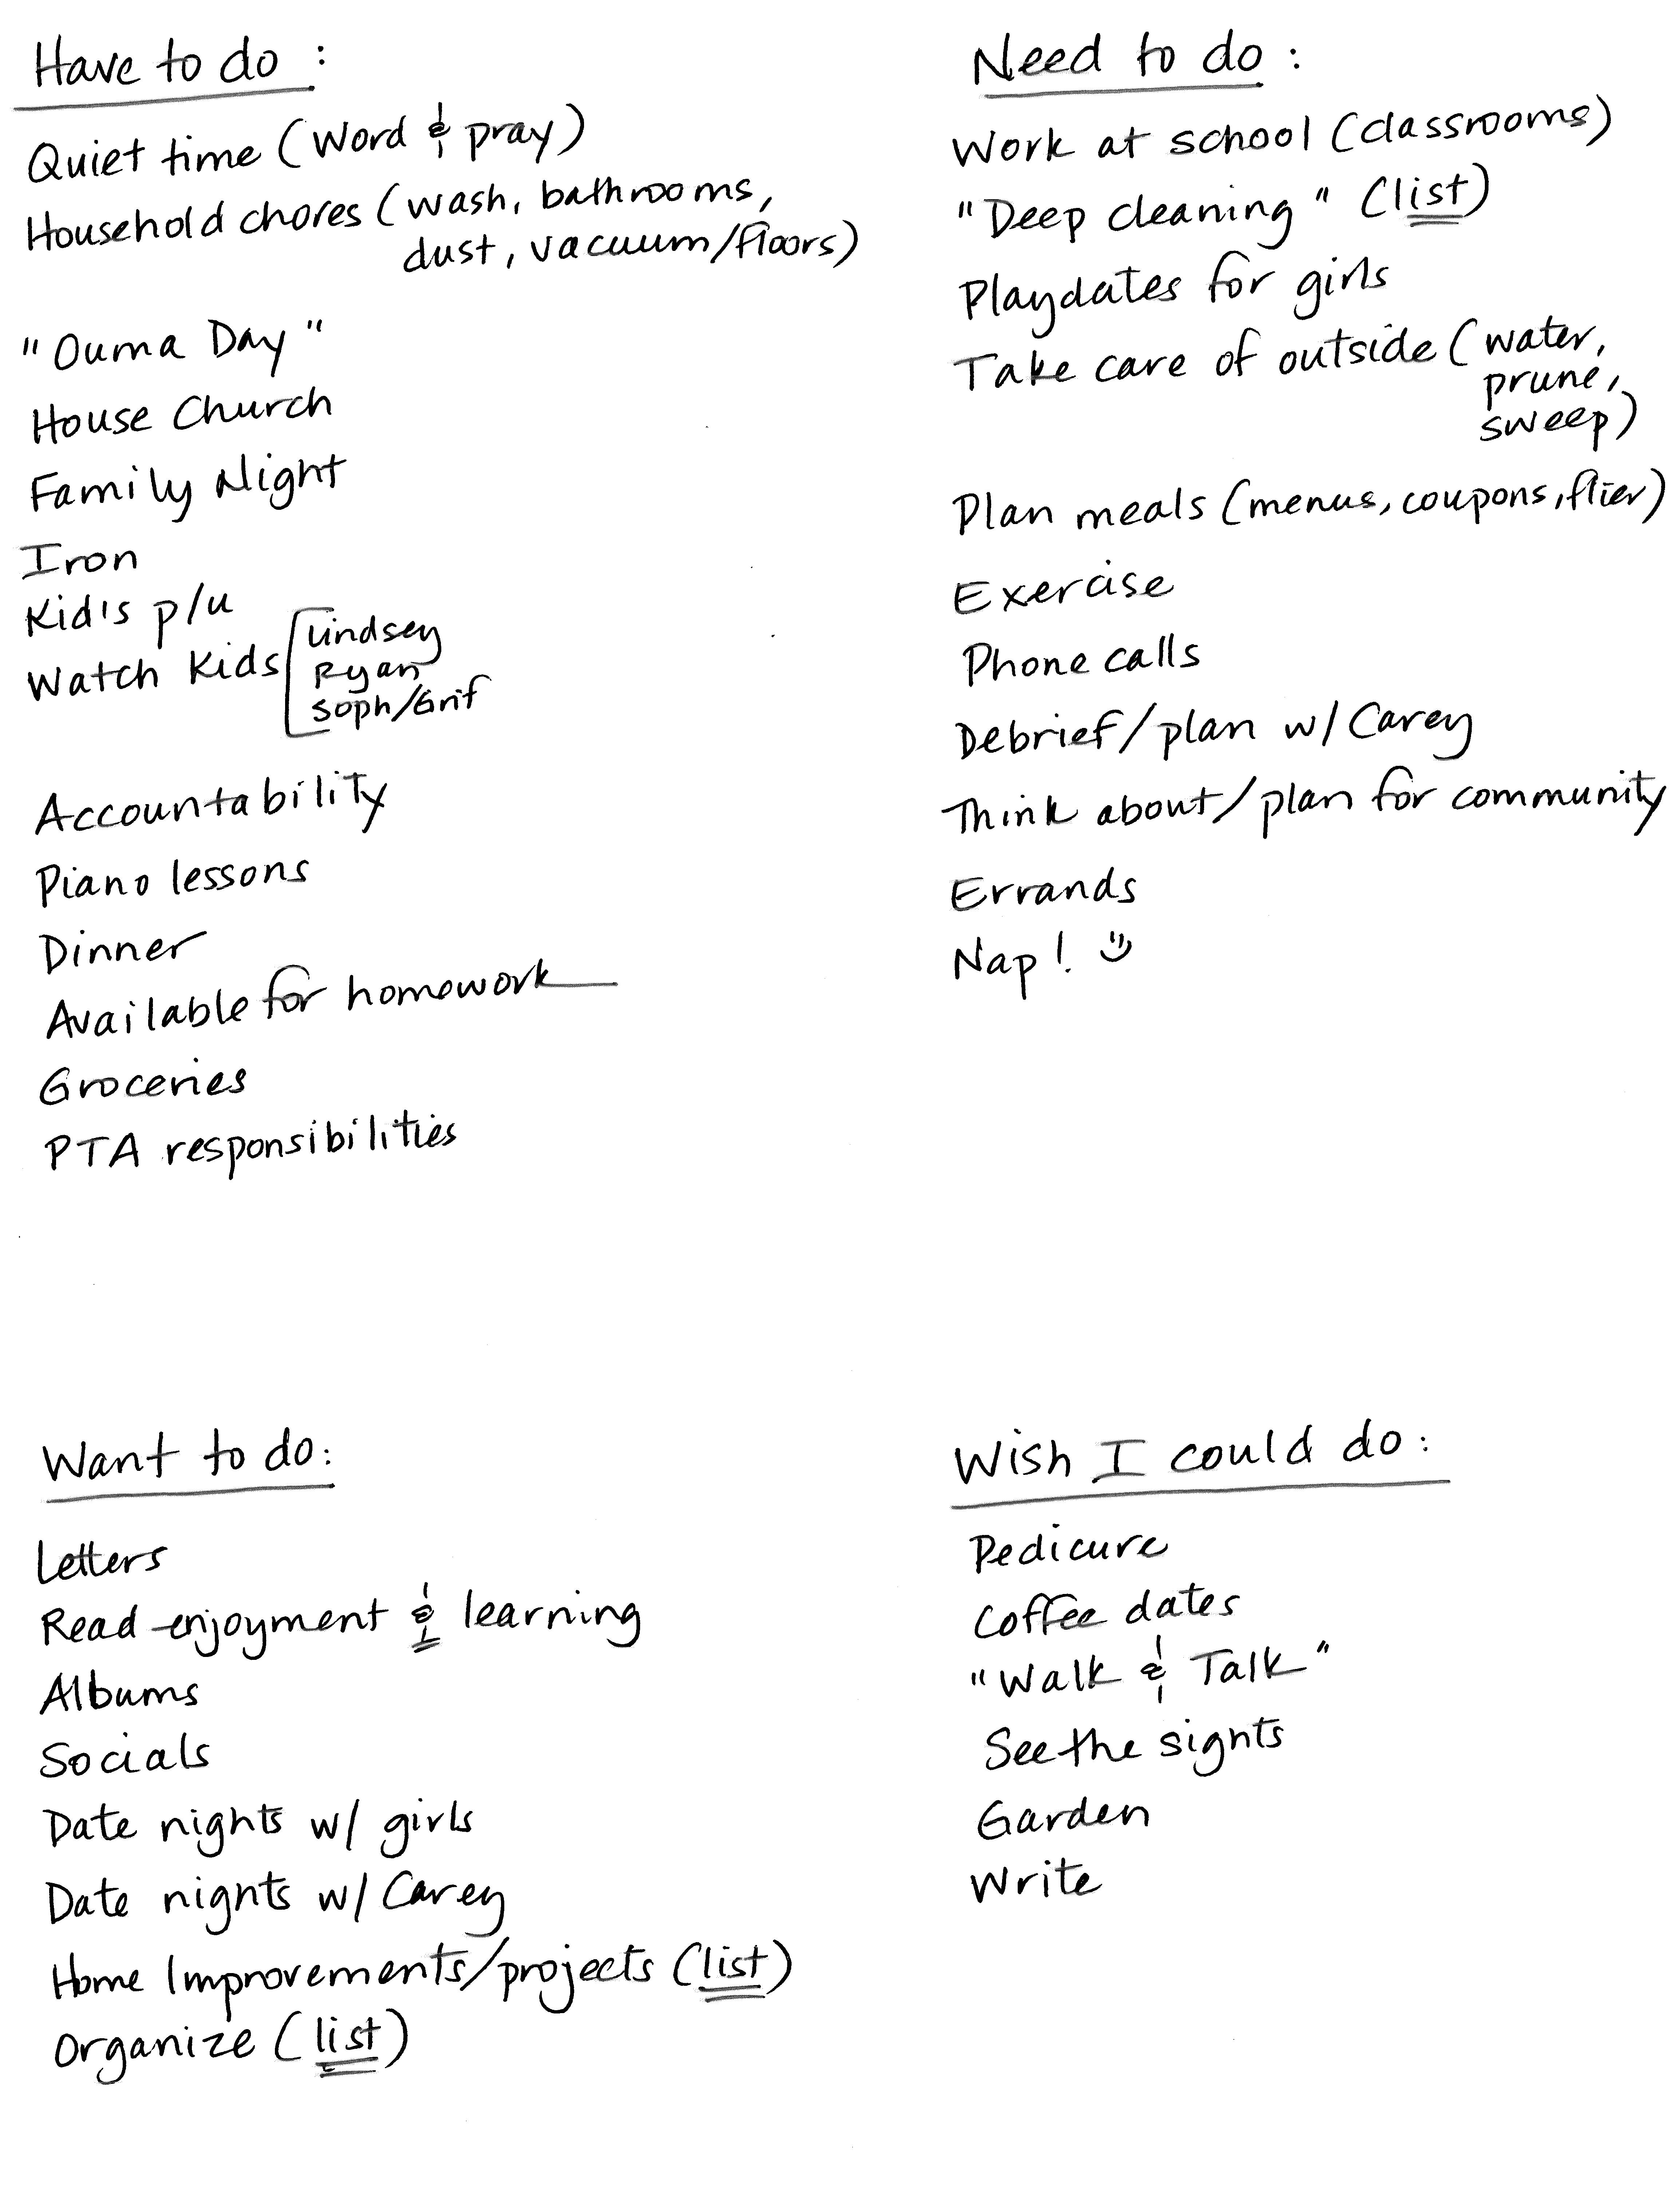 Have to do :
Quiet time (Word & pray)
Household chores (wash, bathrooms,
dust, vacuum/floors)
"Ouma Day"
House Church
Family Night
Iron
Kid's p/u
Watch Kids [Lindsey
Ryan
Soph/Grif
Accountability
Piano lessons
Dinner
Available for homework
Groceries
PTA responsibilities
Need to do :
Work at school (classrooms)
"Deep cleaning" (list)
Playdates for girls
Take care of outside (water,
prune,
sweep)
Plan meals (menus, coupons, flier)
Exercise
Phone calls
Debrief/plan w/ Carey
Think about/plan for community
Errands
Nap! :)
Want to do:
Letters
Read-enjoyment & learning
Albums
Socials
Date nights w/ girls
Date nights w/ Carey
Home Improvements/projects (list)
Organize (list)
Wish I could do :
Pedicure
Coffee dates
"Walk & Talk"
See the sights
Garden
Write